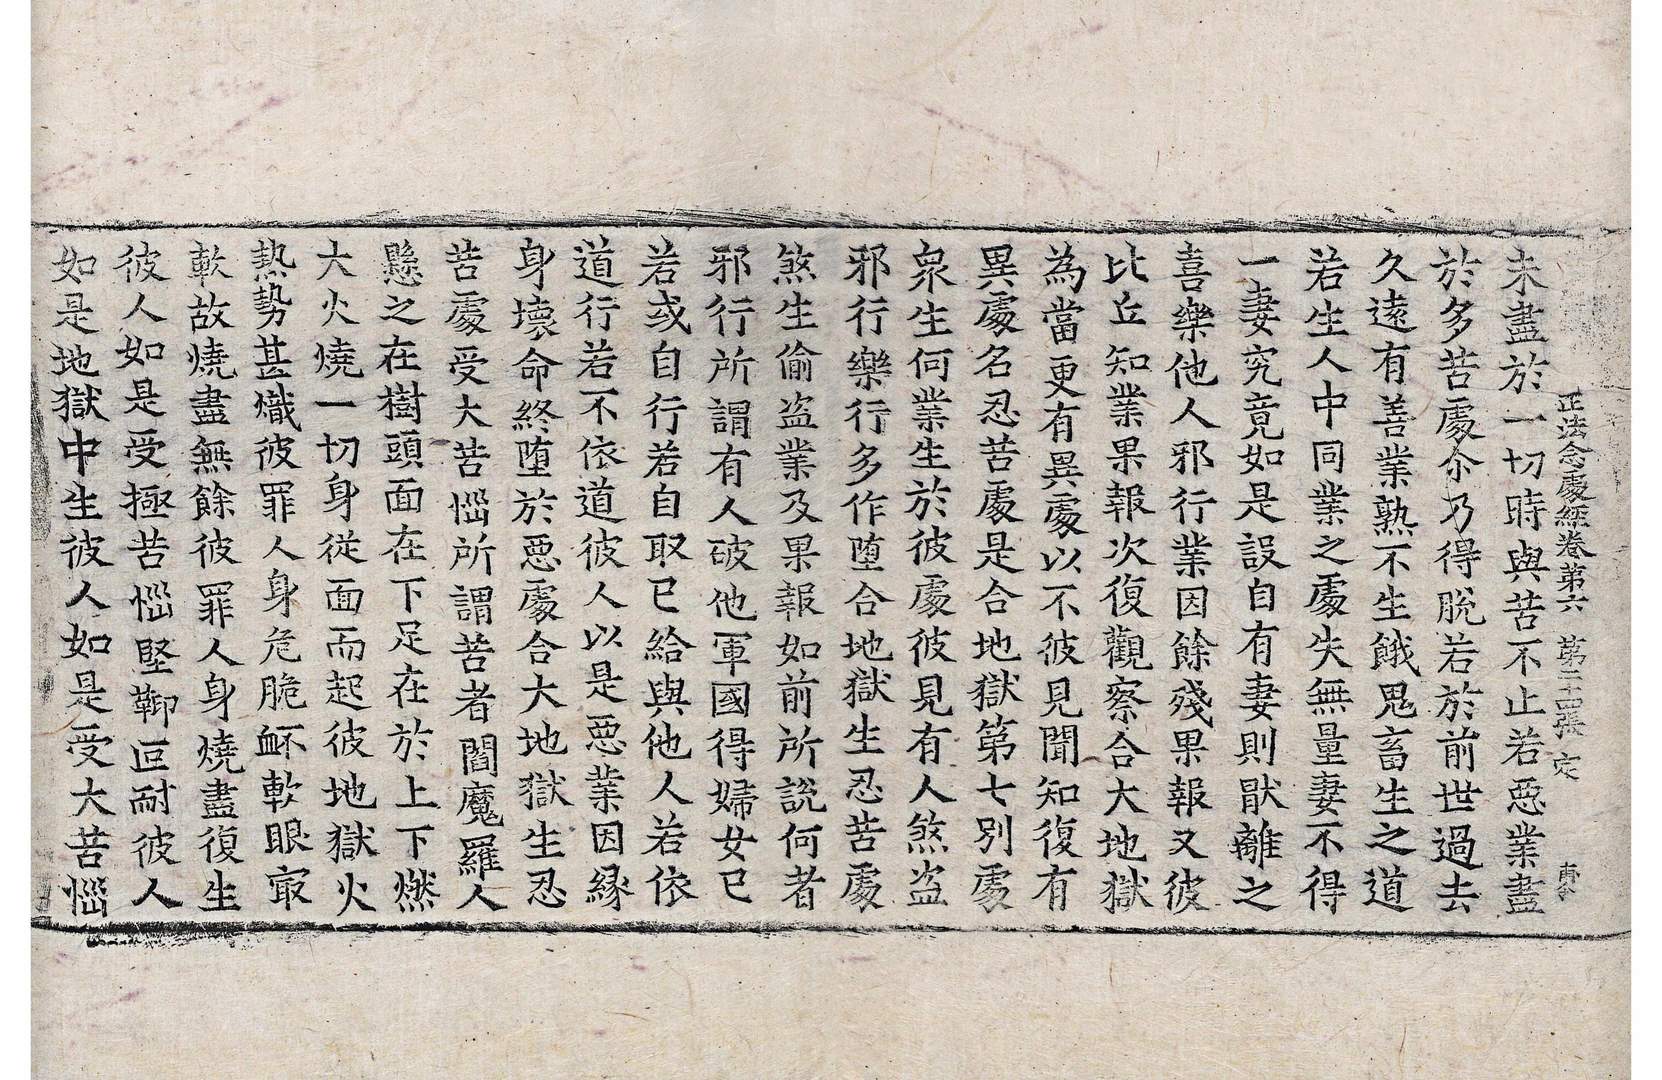 正法念處經卷第六 第二十四張 定
未盡於一切時與苦不止若惡業盡
於多苦處尒乃得脫若於前世過去
久遠有善業熟不生餓鬼畜生之道
若生人中同業之處失無量妻不得
一妻究竟如是設自有妻則猒離之
喜樂他人邪行業因餘殘果報又彼
比丘知業果報次復觀察合大地獄
為當更有異處以不彼見聞知復有
異處名忍苦處是合地獄第七別處
衆生何業生於彼處彼見有人煞盗
邪行樂行多作堕合地獄生忍苦處
煞生偷盗業及果報如前所說何者
邪行所謂有人破他軍國得婦女已
若或自行若自取已給與他人若依
道行若不依道彼人以是惡業因縁
身壞命終堕於惡處合大地獄生忍
苦處受大苦惱所謂苦者閻魔羅人
懸之在樹頭面在下足在於上下燃
大火燒一切身從面而起彼地獄火
熱勢甚熾彼罪人身危脆䘐軟眼㝡
軟故燒盡無餘彼罪人身燒盡復生
彼人如是受極苦惱堅鞕叵耐彼人
如是地獄中生彼人如是受大苦惱